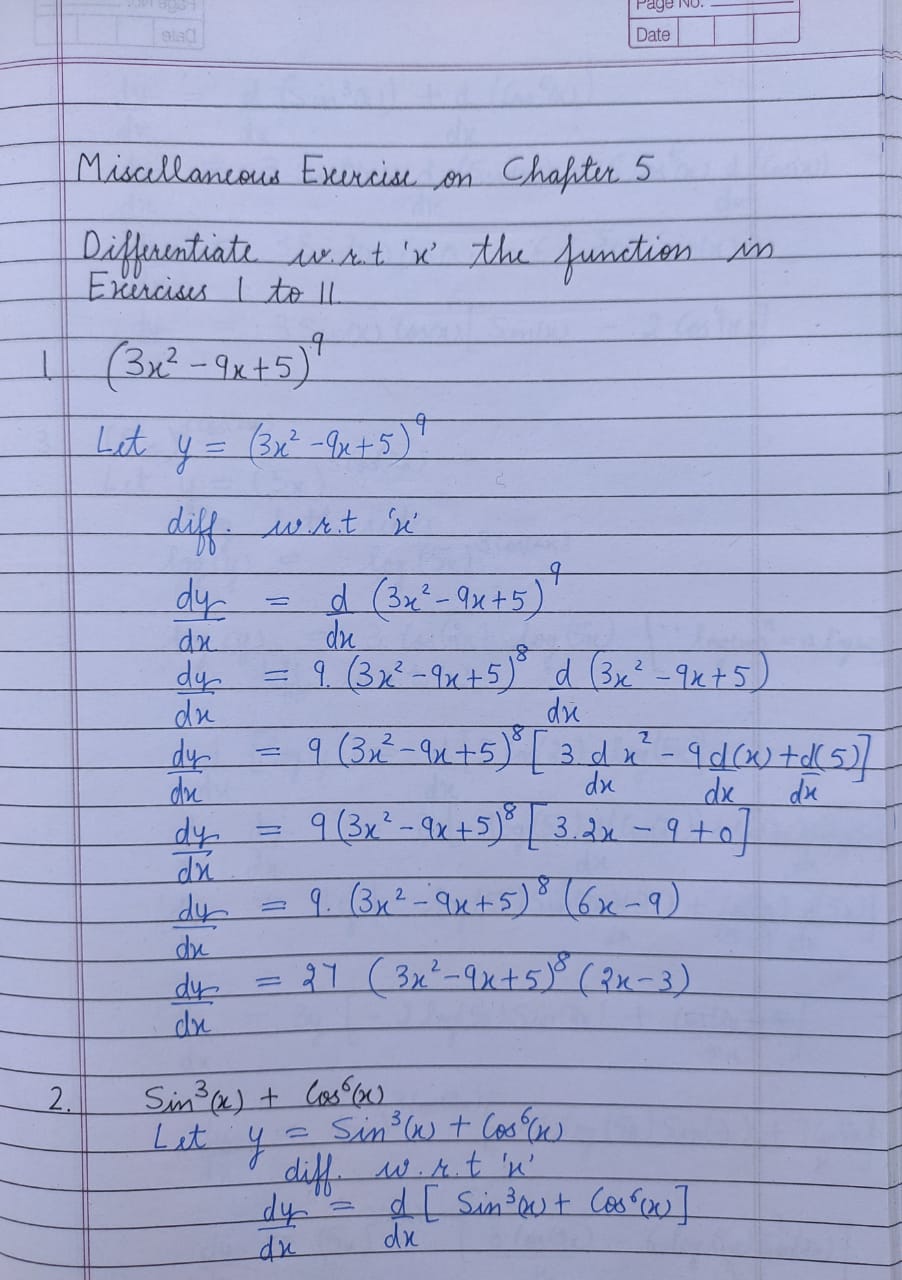 Page No.
Date
Miscellaneous Exercise on Chapter 5
Differentiate w.r.t 'x' the function in
Exercises 1 to 11.
1. (3x² - 9x + 5)⁹
Let y = (3x² - 9x + 5)⁹
diff. w.r.t 'x'
dy/dx = d/dx (3x² - 9x + 5)⁹
dy/dx = 9. (3x² - 9x + 5)⁸ d/dx (3x² - 9x + 5)
dy/dx = 9 (3x² - 9x + 5)⁸ [3 d/dx x² - 9 d/dx (x) + d/dx (5)]
dy/dx = 9 (3x² - 9x + 5)⁸ [3.2x - 9 + 0]
dy/dx = 9. (3x² - 9x + 5)⁸ (6x - 9)
dy/dx = 27 (3x² - 9x + 5)⁸ (2x - 3)
2. Sin³(x) + Cos⁶(x)
Let y = Sin³(x) + Cos⁶(x)
diff. w.r.t 'x'
dy/dx = d/dx [Sin³(x) + Cos⁶(x)]